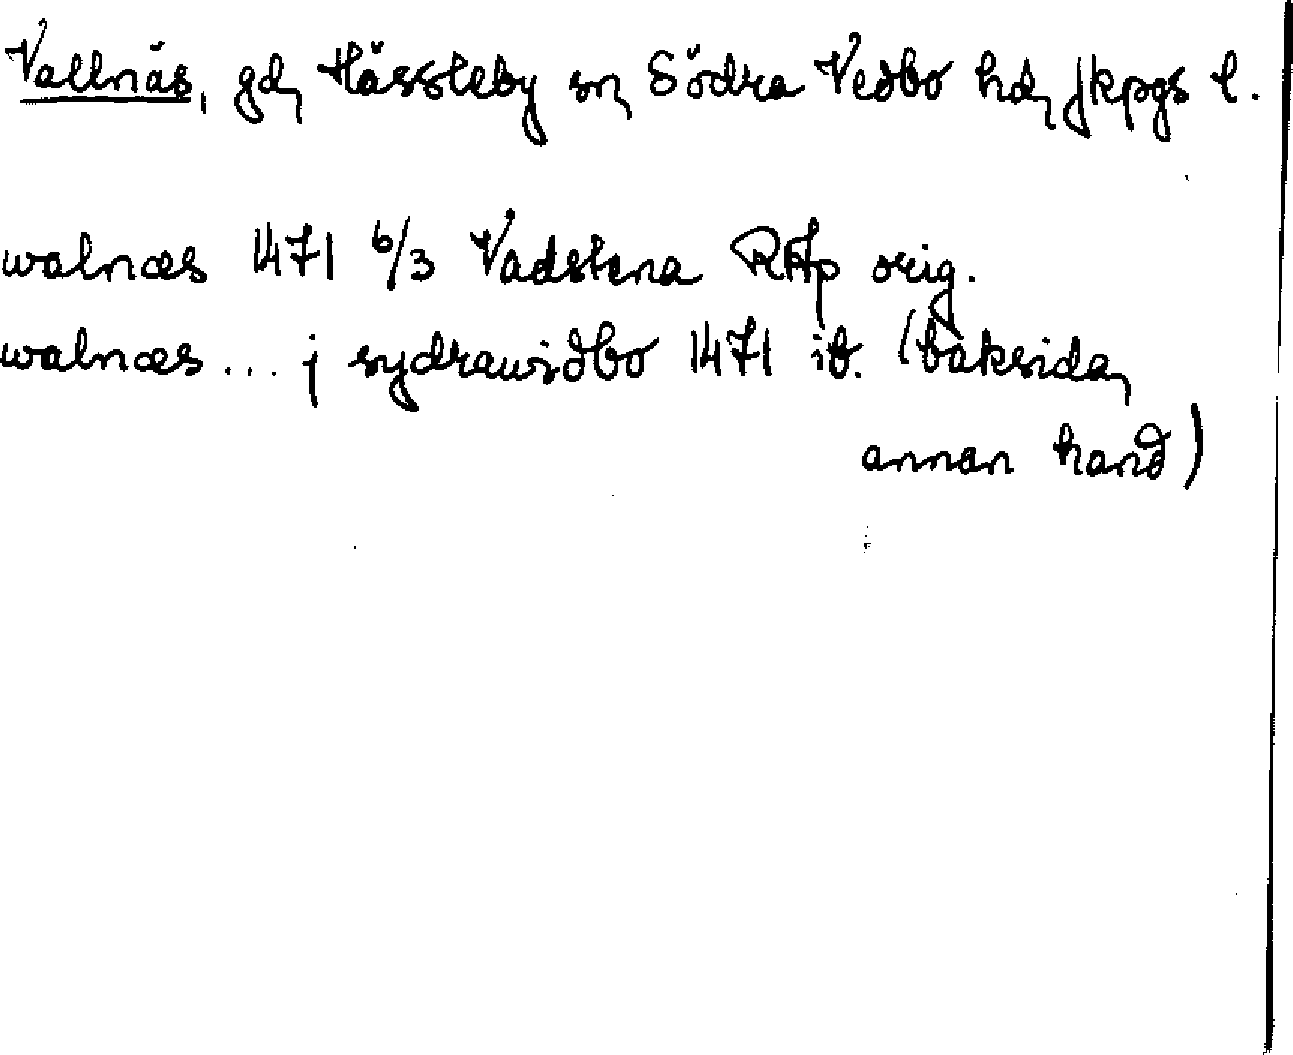 Vallnäs, gd, Hässleby sn, Södra Vedbo hd, Jkpgs l.
walnæs 1471 6/3 Vadstena RAp orig.
walnæs ... j sydrawidbo 1471 ib. (baksida,
annan hand)